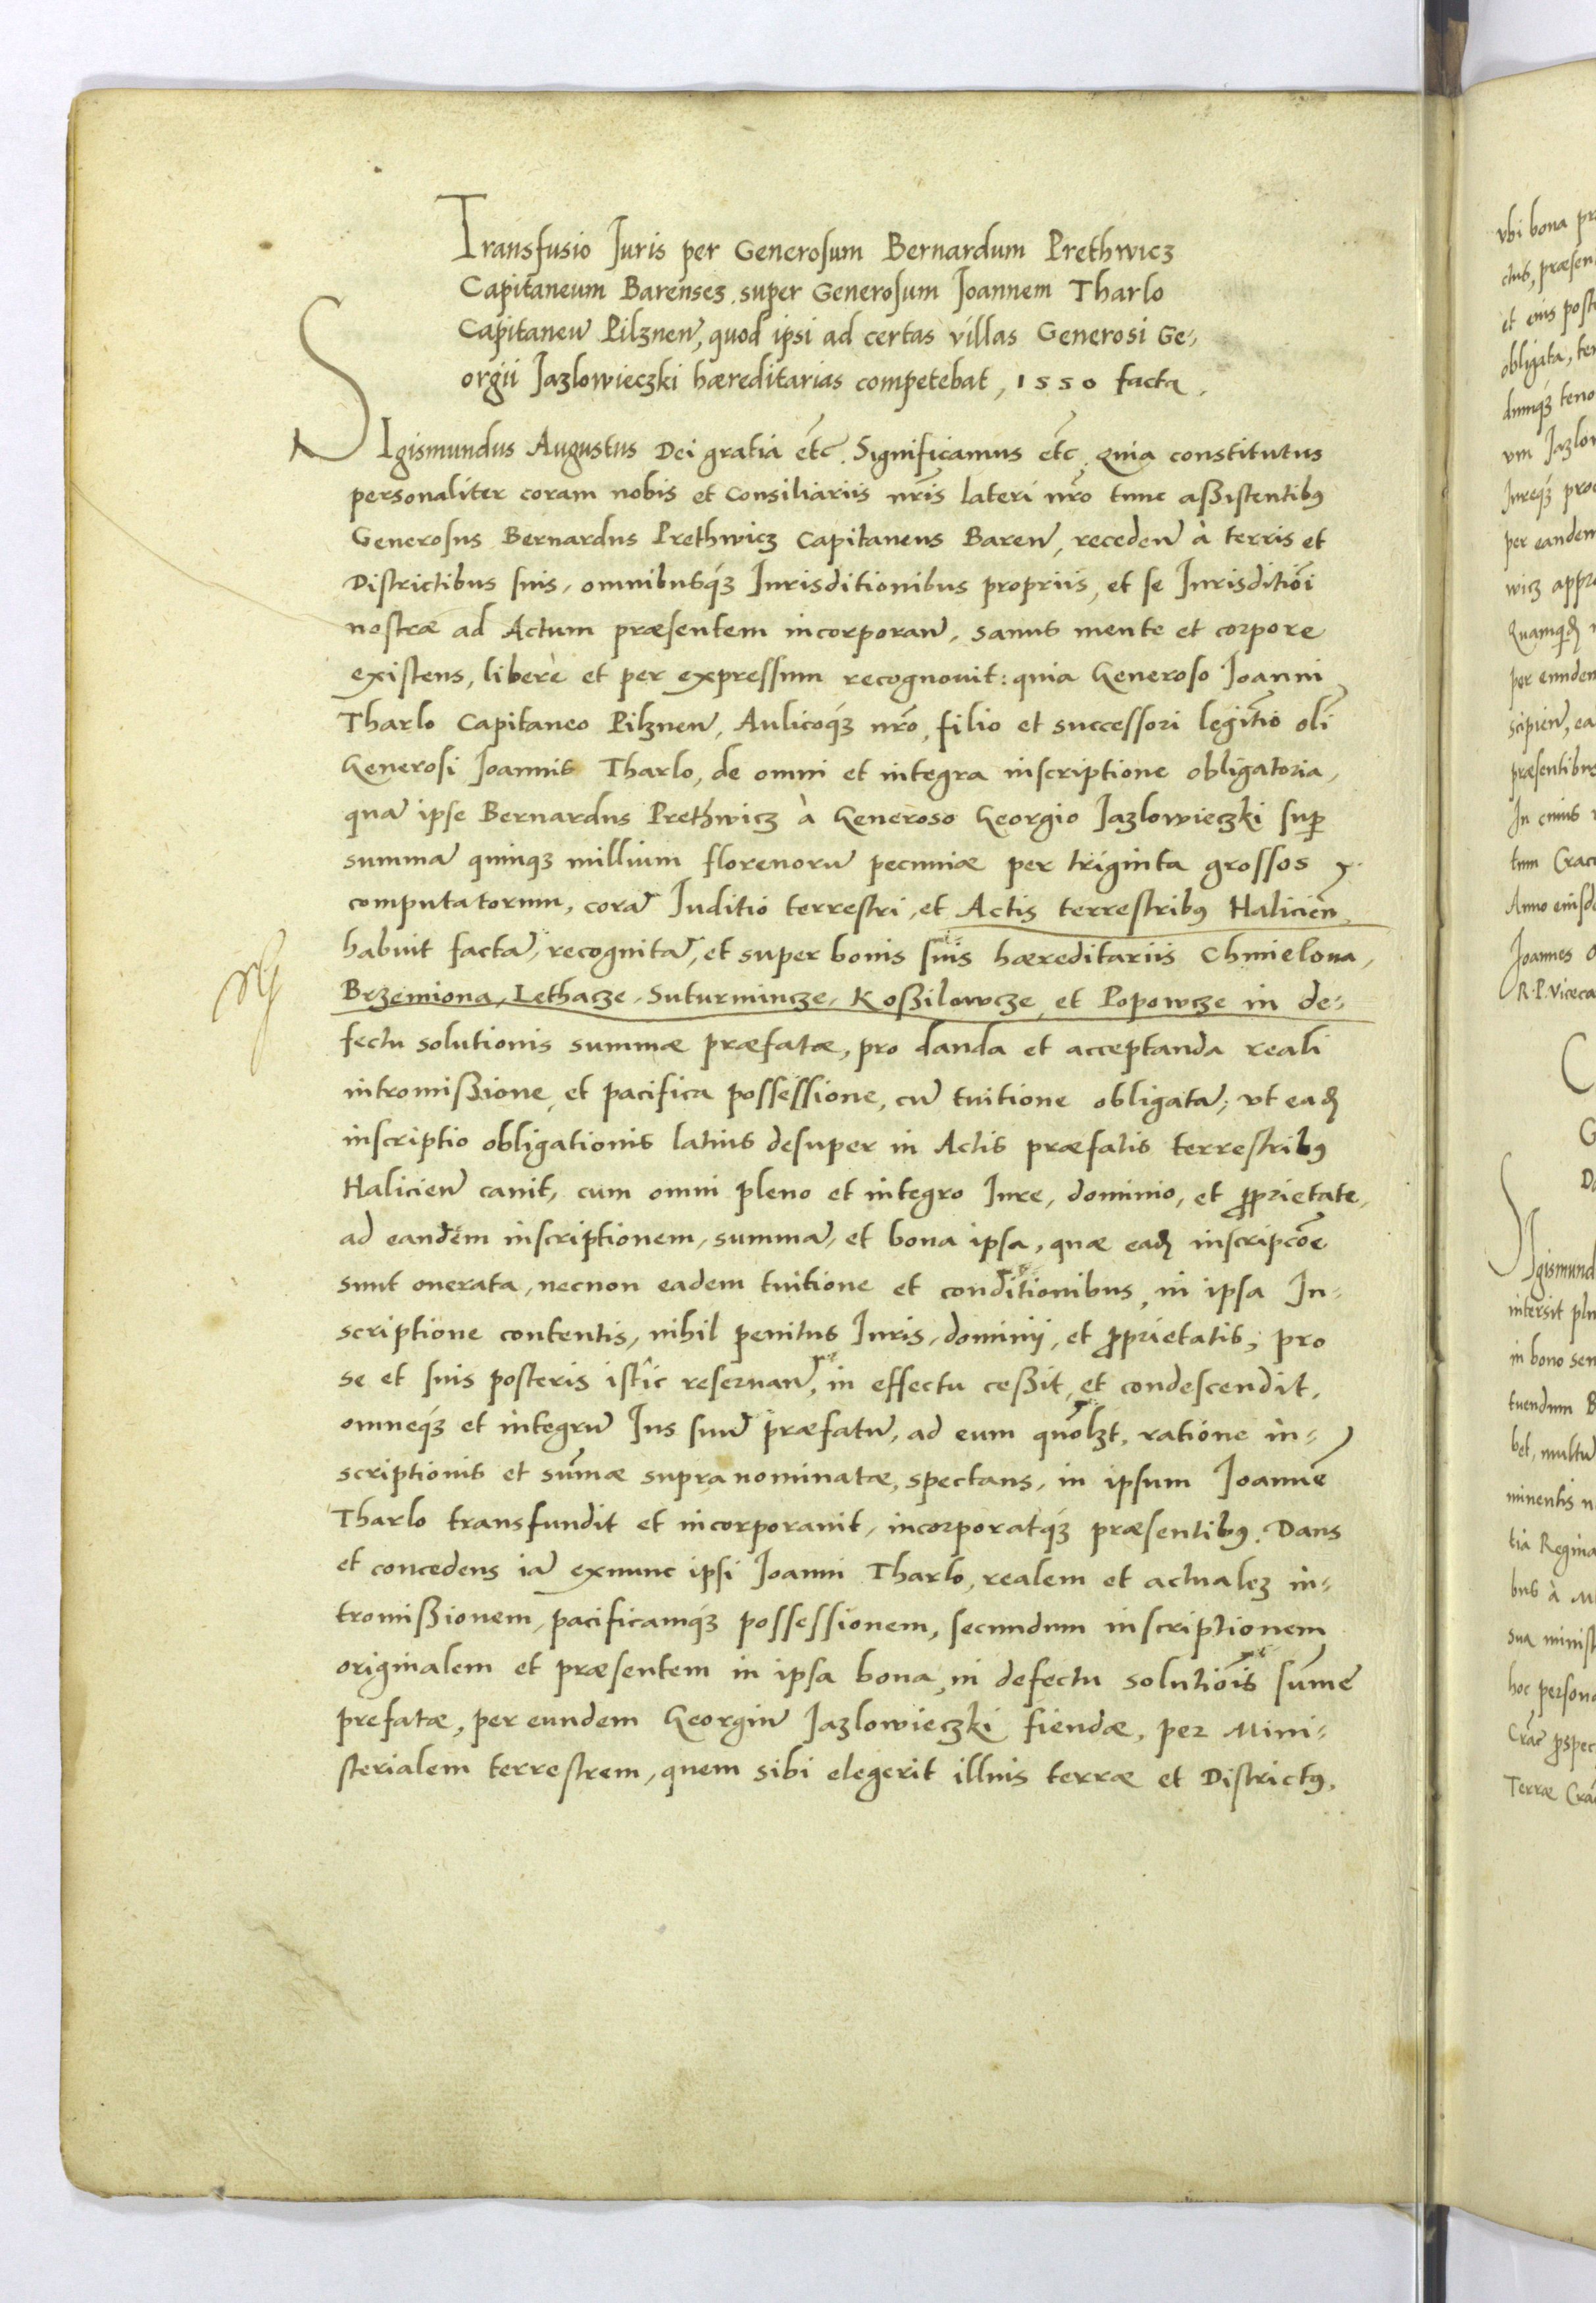 Transfusio Iuris per Generosum Bernardum Prethwicz
Capitaneum Barensez super Generosum Ioannem Tharlo
Capitaneũ Pilznen̄, quod ipsi ad certas villas Generosi Ge-
orgii Jazlowieczki hæreditarias competebat, 1550 facta.
SIgismundus Augustus Dei gratia etc. Significamus etc. Quia constitutus
personaliter coram nobis et Consiliariis nr̃is lateri nr̃o tunc aßistentibꝰ
Generosus Bernardus Prethwicz Capitaneus Baren̄, receden̄ à terris et
Districtibus suis, omnibusqꝫ Iurisditionibus propriis, et se Iurisditiõi
nostræ ad Actum præsentem incorporan̄, sanus mente et corpore
existens, liberè et per expressum recognovit: quia Generoso Ioanni
Tharlo Capitaneo Pilznen̄, Aulicoqꝫ nr̃o, filio et successori legit̃io ol̃i
Generosi Ioannis Tharlo, de omni et integra inscriptione obligatoria,
quã ipse Bernardus Prethwicz à Generoso Georgio Jazlowieczki suꝑ
summã quinqꝫ millium florenorũ pecuniæ per triginta grossos
computatorum, corã Iuditio terrestri, et Actis terrestribꝰ Halicien̄
habuit factã, recognitã, et super bonis suis hæreditariis Chmielowa,
Brzemiona, Lethacze, Suturmincze, Koßilowcze, et Popowcze in de-
fectu solutionis summæ præfatæ, pro danda et acceptanda reali
intromißione, et pacifica possessione, cũ tuitione obligatã; vt eadẽ
inscriptio obligationis latius desuper in Actis præfatis terrestribꝰ
Halicien̄ canit, cum omni pleno et integro Iure, dominio, et ꝓprietate,
ad eandem inscriptionem, summã, et bona ipsa, quæ eadẽ inscripcõe
sunt onerata, necnon eadem tuitione et conditionibus, in ipsa In-
scriptione contentis, nihil penitus Iuris, dominij, et ꝓprietatis, pro
se et suis posteris istîc reseruan̄, in effectu ceßit, et condescendit,
omneqꝫ et integrũ Ius suũ præfatũ, ad eum quõlꝫt, ratione in-
scriptionis et sũmæ supra nominatæ, spectans, in ipsum Ioannẽ
Tharlo transfundit et incorporauit, incorporatqꝫ præsentibꝰ. Dans
et concedens iã exnunc ipsi Ioanni Tharlo, realem et actualeꝫ in-
tromißionem, pacificamqꝫ possessionem, secundum inscriptionem
originalem et præsentem in ipsa bona, in defectu solutiõis sũme
prefatæ, per eundem Georgiũ Jazlowieczki fiendæ, per Mini-
sterialem terrestrem, quem sibi elegerit illius terræ et Districtꝰ,